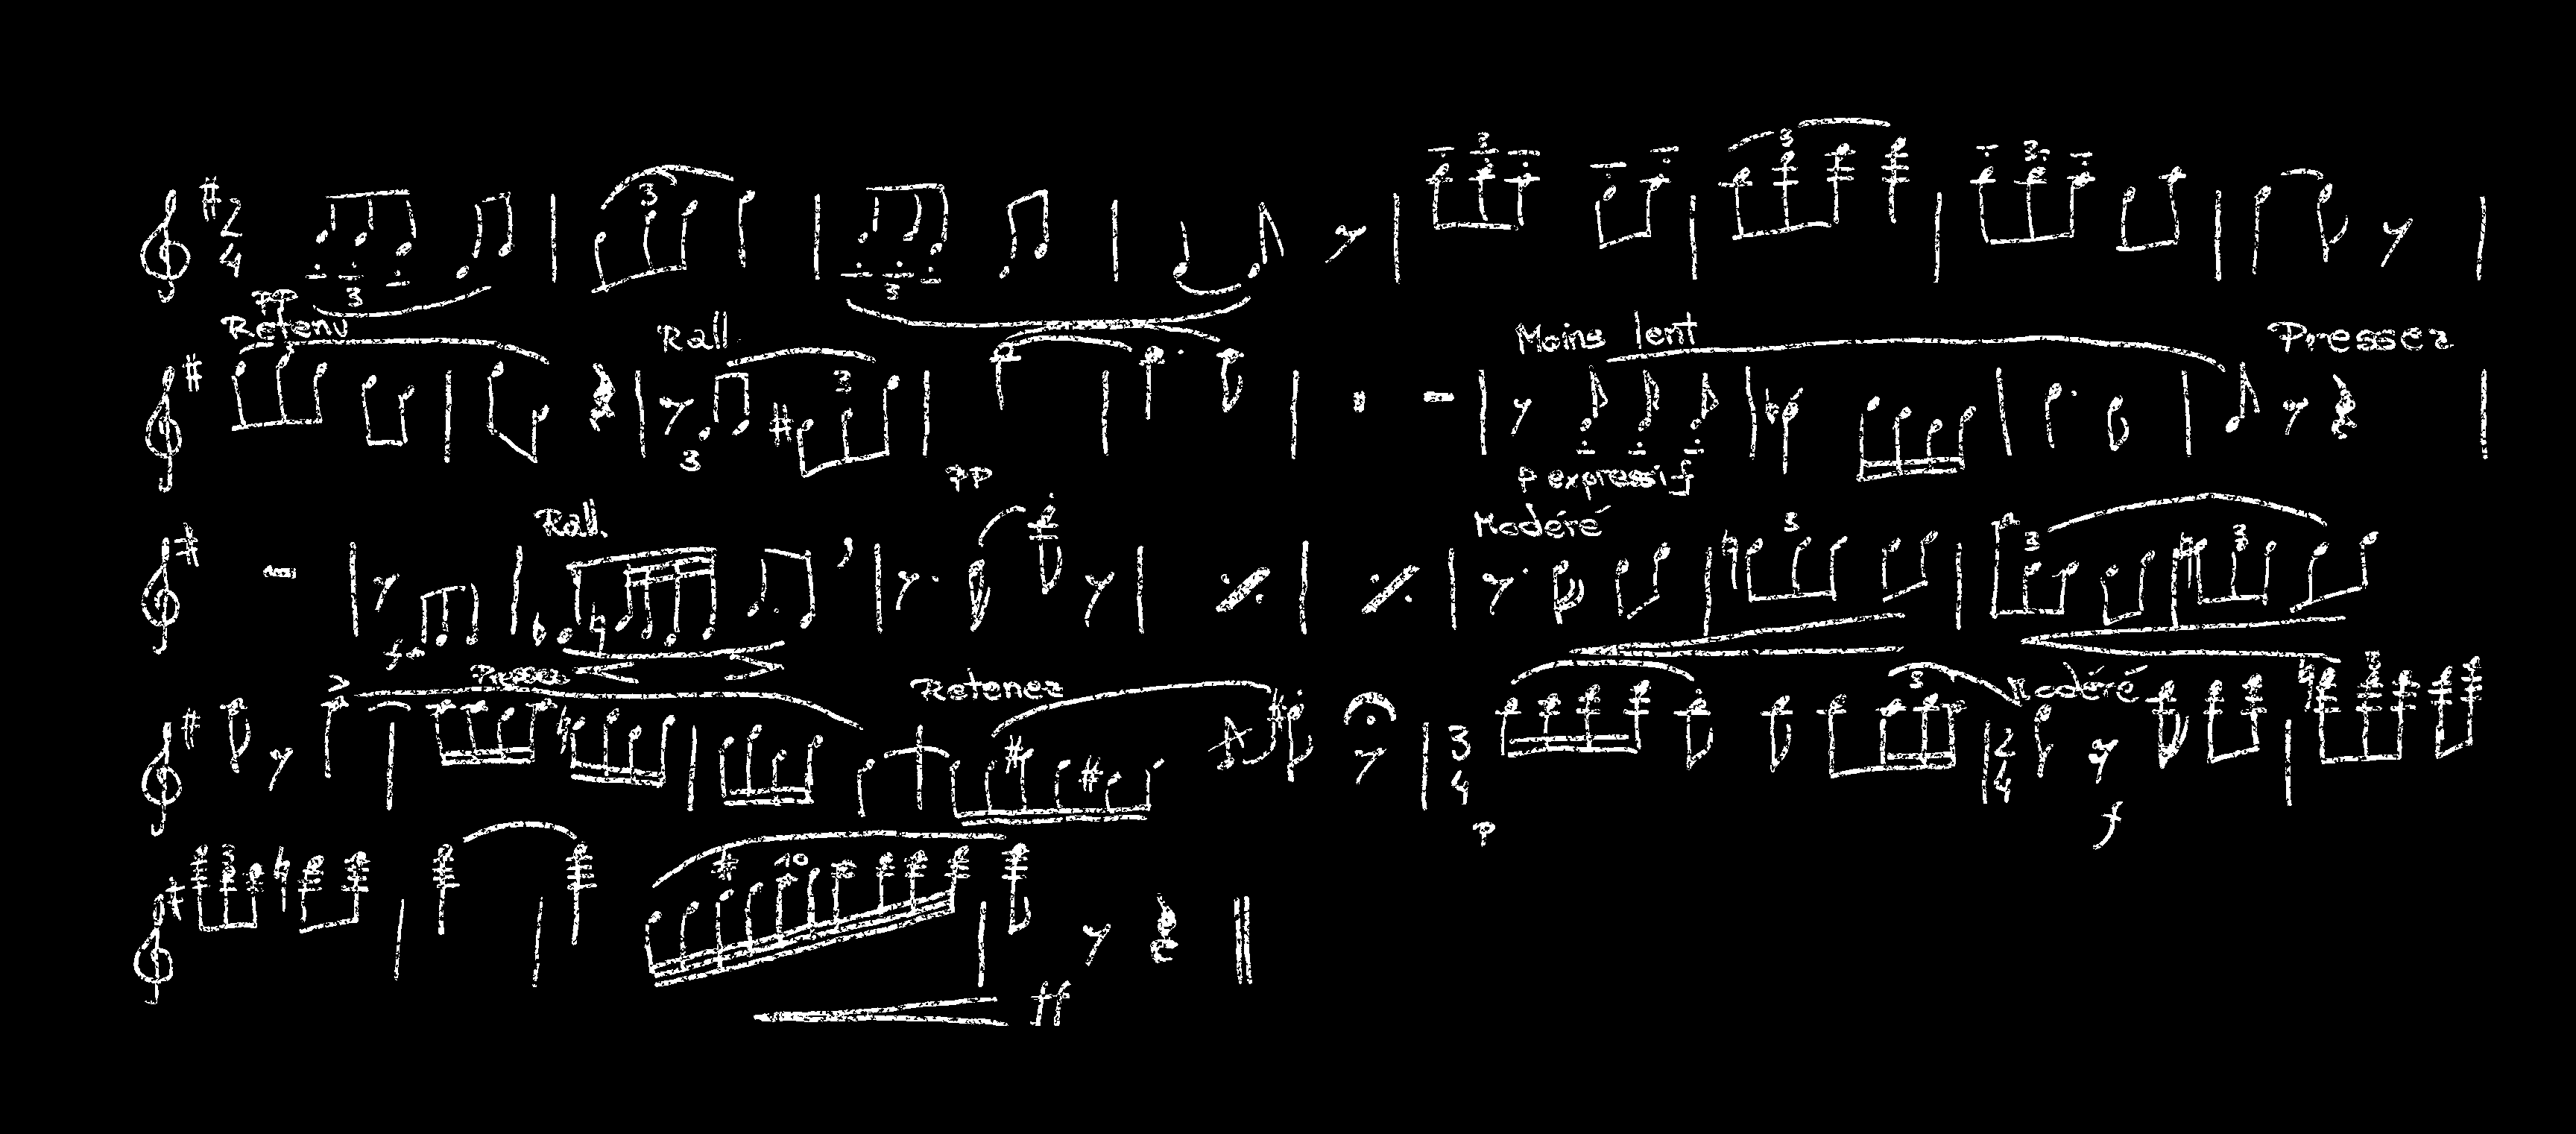 2
4
3 3 3 3 3 3
pp
Retenu Rall. Moins lent Pressez
3 3
pp p expressif
Rall. Modéré
3 3 3
f
Pressez Retenez Modéré
3 3
3
4
2
4
p f
3 10
ff